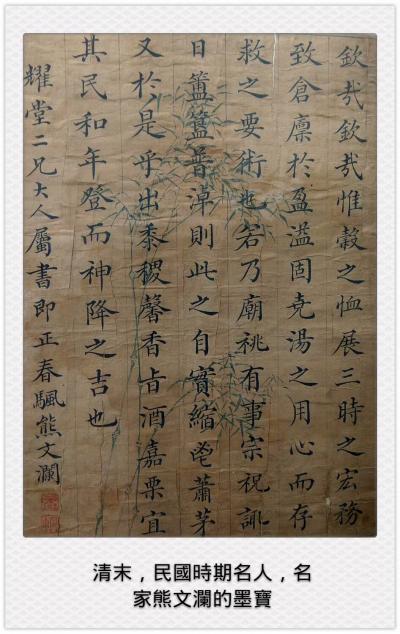 欽㢤欽㢤惟糓之恤展三時之宏務
致倉廪於盈溢固尭湯之用心而存
救之要術也若乃廟祧有事宗祝諏
日簠簋普淖則此之自實縮鬯蕭茅
又於是乎出黍稷馨香旨酒嘉栗宜
其民和年登而神降之吉也
耀堂二兄大人屬書即正春颿熊文瀾
清末，民國時期名人，名
家熊文瀾的墨寶